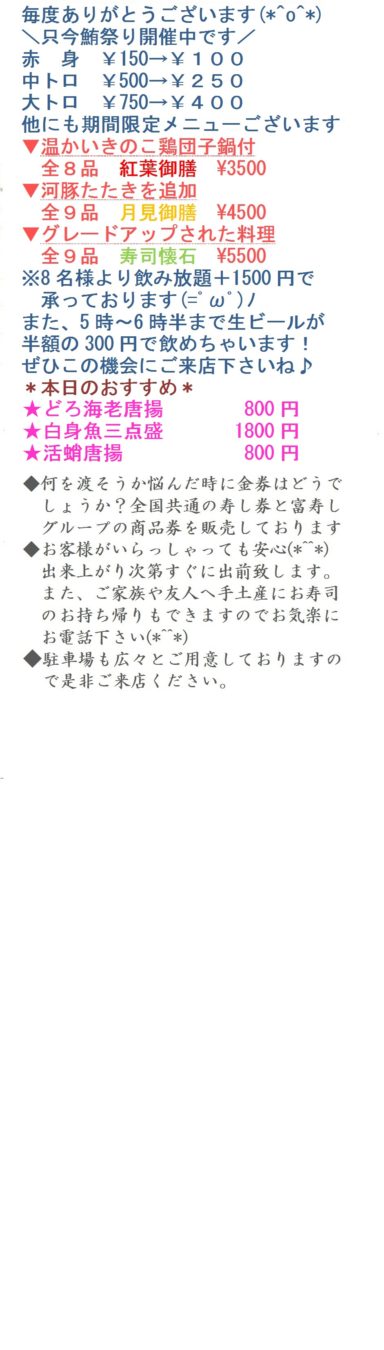 毎度ありがとうございます(*^o^*)
＼只今鮪祭り開催中です／
赤　身　￥150→￥１００
中トロ　￥500→￥２５０
大トロ　￥750→￥４００
他にも期間限定メニューございます
▼温かいきのこ鶏団子鍋付
全８品　紅葉御膳　¥3500
▼河豚たたきを追加
全９品　月見御膳　¥4500
▼グレードアップされた料理
全９品　寿司懐石　¥5500
※8 名様より飲み放題＋1500 円で
承っております(=ﾟωﾟ)ﾉ
また、5 時～6 時半まで生ビールが
半額の 300 円で飲めちゃいます！
ぜひこの機会にご来店下さいね♪
＊本日のおすすめ＊
★どろ海老唐揚　800 円
★白身魚三点盛　1800 円
★活蛸唐揚　800 円
◆何を渡そうか悩んだ時に金券はどうで
しょうか？全国共通の寿し券と富寿し
グループの商品券を販売しております
◆お客様がいらっしゃっても安心(*^^*)
出来上がり次第すぐに出前致します。
また、ご家族や友人へ手土産にお寿司
のお持ち帰りもできますのでお気楽に
お電話下さい(*^^*)
◆駐車場も広々とご用意しておりますの
で是非ご来店ください。